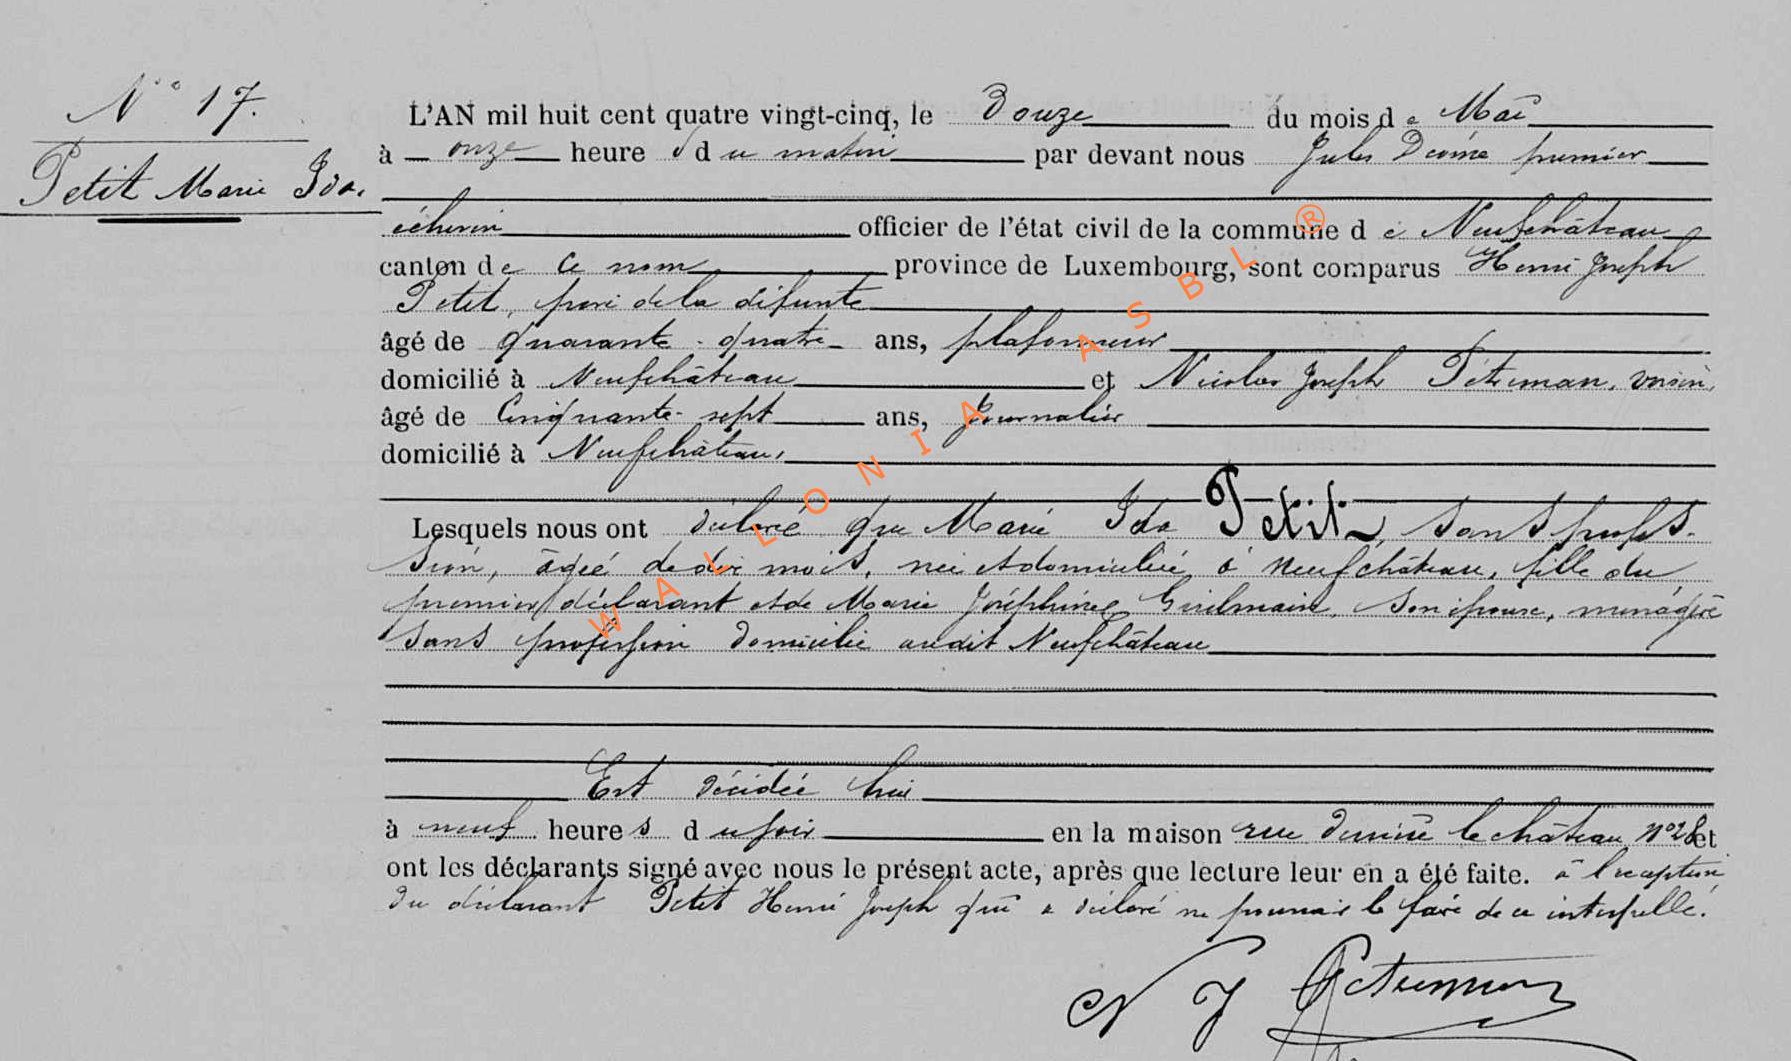 N° 17.
Petit Marie Ida.
L'AN mil huit cent quatre vingt-cinq, le Douze du mois de Mai
à onze heure du matin par devant nous Jules premier
échevin officier de l'état civil de la commune de Neufchâteau
canton de ce nom province de Luxembourg, sont comparus Henri Joseph
Petit, père de la défunte
âgé de quarante-quatre ans, plafonneur
domicilié à Neufchâteau et Nicolas Joseph Péterman, voisin,
âgé de Cinquante-sept ans, journalier
domicilié à Neufchâteau,
Lesquels nous ont déclaré que Marie Ida Petit, sans profes-
sion, âgée de dix mois, née et domiciliée à Neufchâteau, fille du
premier déclarant et de Marie Joséphine son épouse, ménagère
sans profession domicilié audit Neufchâteau
Est décédée hier
à neuf heures du soir en la maison rue derrière le château n° 28 et
ont les déclarants signé avec nous le présent acte, après que lecture leur en a été faite. à l'exception
du déclarant Petit Henri Joseph qui a déclaré ne pouvoir le faire de ce interpellé.
N J Peterman
WALLONIA ASBL ®